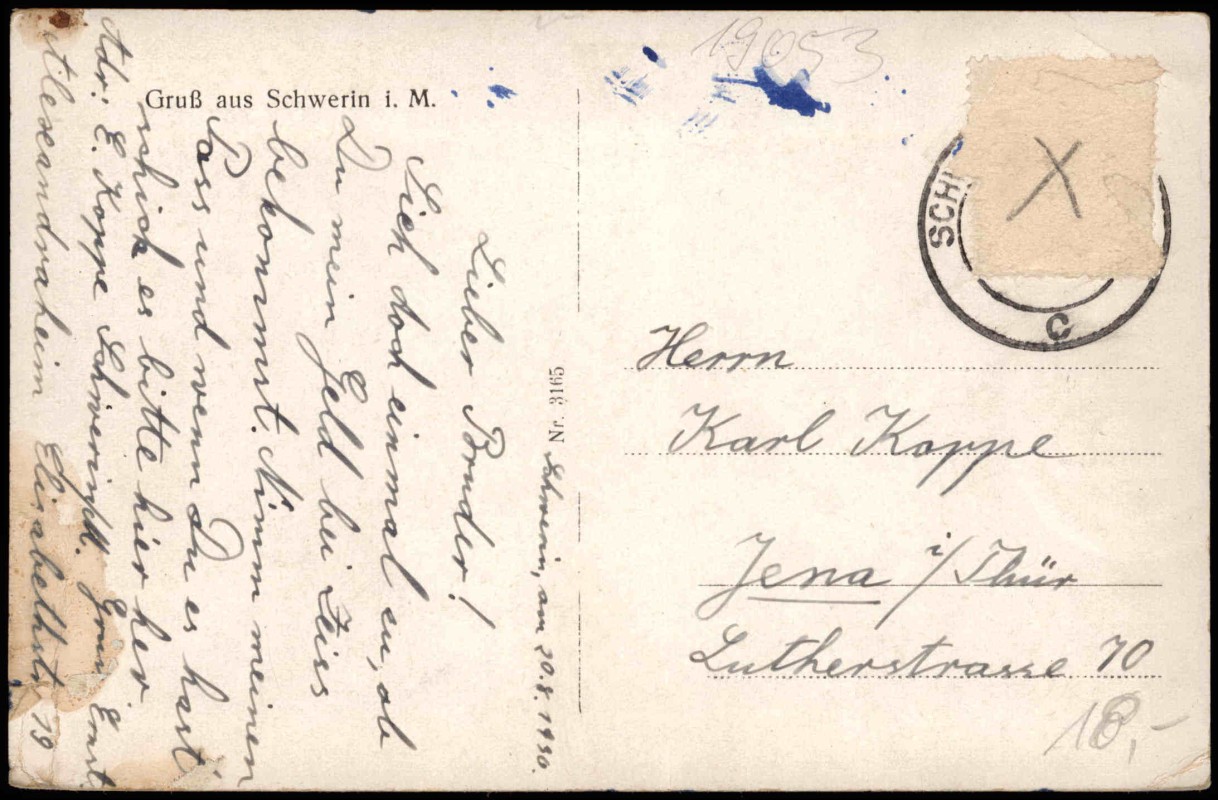 Gruß aus Schwerin i. M.
Schwerin, am 20.8.1930.
Lieber Bruder!
Sieh doch einmal zu, ob
Du mein Geld bei Zeiss
bekommst. Nimm meinen
Pass und wenn Du es hast
schick es bitte hier her
Adr: E. Koppe Schwerin Ernst
Alexandraheim Elisabethstr. 19
Nr. 3165
19053
SCH
C
X
Herrn
Karl Koppe
Jena i/Thür
Lutherstrasse 70
18,-